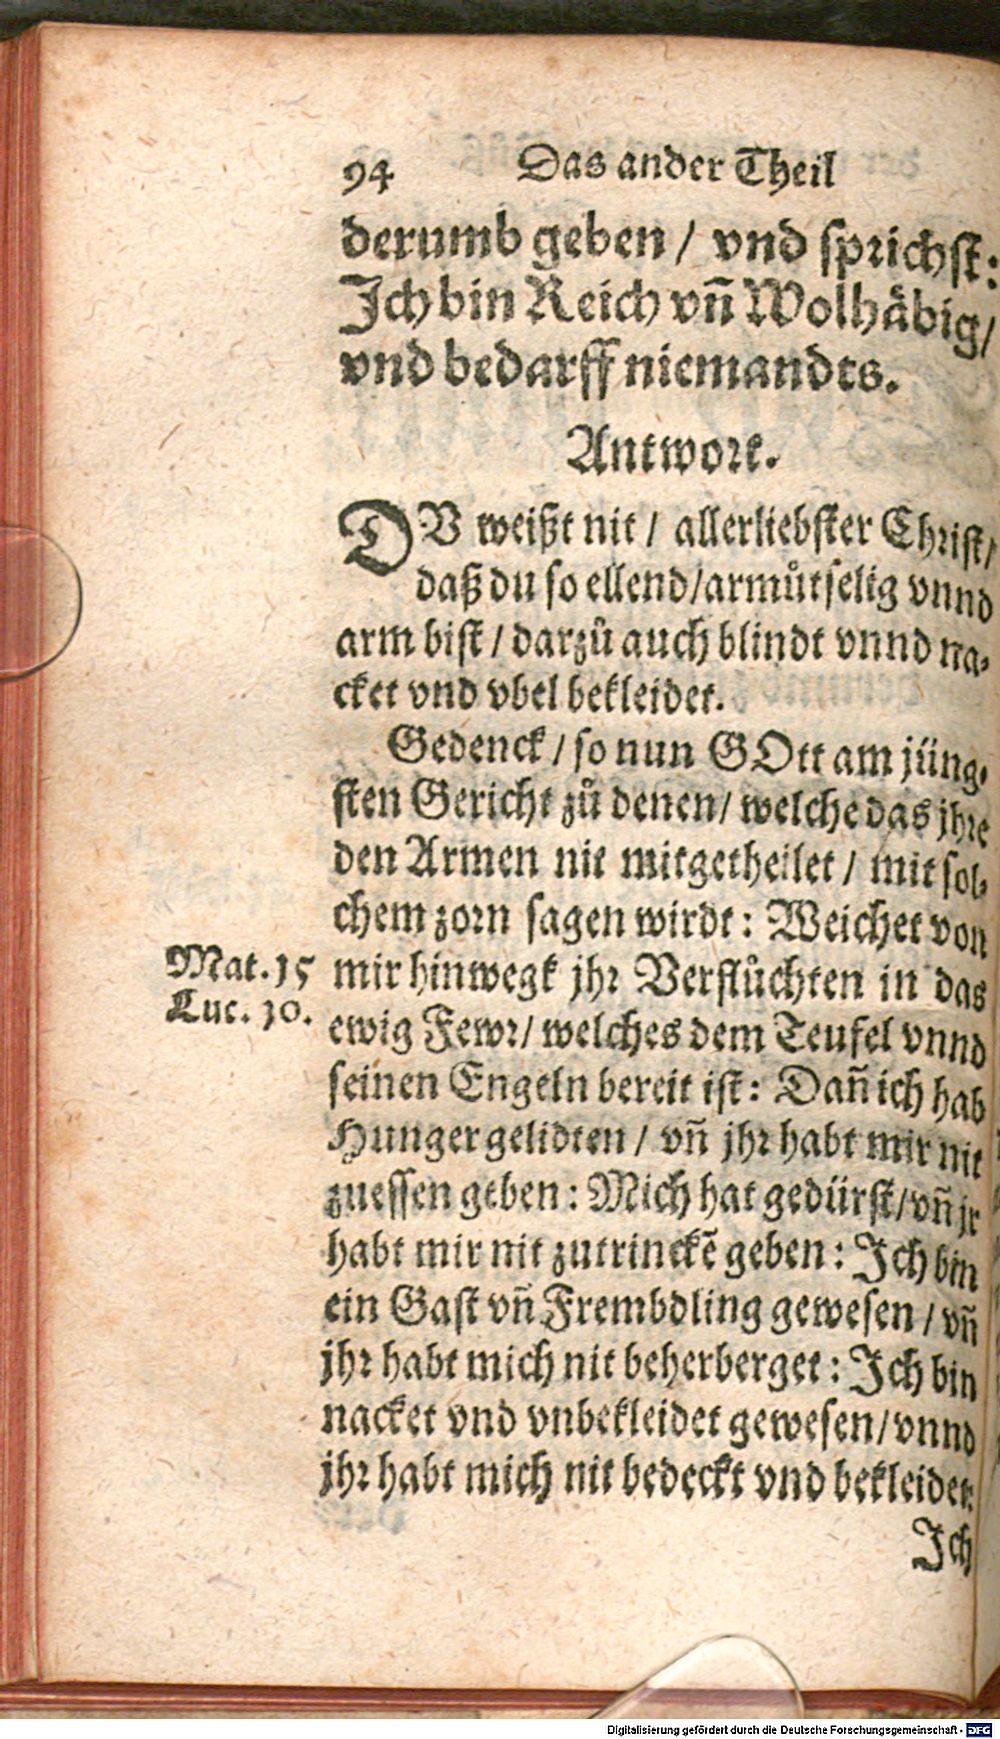 94 Das ander Theil
derumb geben / vnd sprichst:
Jch bin Reich vñ Wolhäbig/
vnd bedarff niemandts.
Antwort.
DV weißt nit / allerliebster Christ/
daß du so ellend/armůtselig vnnd
arm bist / darzů auch blindt vnnd na-
cket vnd vbel bekleidet.
Gedenck / so nun GOtt am jüng-
sten Gericht zů denen/ welche das jhre
den Armen nit mitgetheilet / mit sol-
chem zorn sagen wirdt: Weichet von
Mat. 15
Luc. 10.
mir hinwegk jhr Verflůchten in das
ewig Fewr/ welches dem Teufel vnnd
seinen Engeln bereit ist: Dañ ich hab
Hunger gelidten / vñ jhr habt mir nit
zuessen geben: Mich hat gedürst/vñ jr
habt mir nit zutrinckē geben: Jch bin
ein Gast vñ Frembdling gewesen / vñ
jhr habt mich nit beherberget: Jch bin
nacket vnd vnbekleidet gewesen/vnnd
jhr habt mich nit bedeckt vnd bekleidet:
Jch
Digitalisierung gefördert durch die Deutsche Forschungsgemeinschaft - DFG